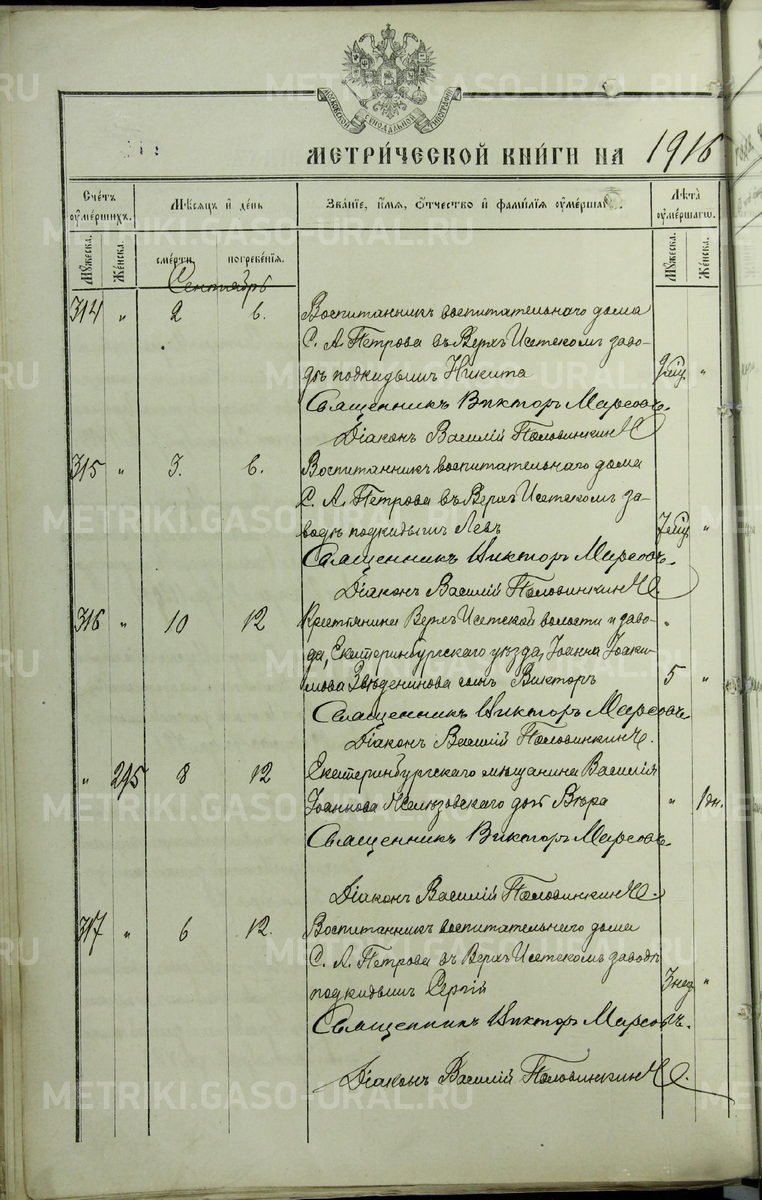 METRIKI.GASO-URAL.RU
МОСКОВСКОЙ СѴНОДАЛЬНОЙ ТИПОГРАФІИ
МЕТРИ́ЧЕСКОЙ КНИ́ГИ НА 1916
Счетъ оумершихъ.
Мѣсяцъ и день
Званіе, имя, отчество и фамилія оумершаго.
Лѣта оумершаго.
Мужеска. Женска. смерти. погребенія. Мужеска. Женска.
Сентябрь
314 " 2 6. Воспитанникъ воспитательнаго дома
С. А. Петрова въ Верхъ Исетскомъ заво-
дѣ подкидышъ Никита "
Священникъ Викторъ Марсовъ.
Діаконъ Василій Половинкинъ
315 " 3. 6. Воспитанникъ воспитательнаго дома
С. А. Петрова въ Верхъ Исетскомъ за-
водѣ подкидышъ Левъ "
Священникъ Викторъ Марсовъ.
Діаконъ Василій Половинкинъ.
316 " 10 12 Крестьянина Верхъ Исетской волости и заво-
да, Екатеринбургскаго уѣзда, Іоанна Іоаки-
мова сынъ Викторъ 5 "
Священникъ Викторъ Марсовъ
Діаконъ Василій Половинкинъ.
" 245 8 12 Екатеринбургскаго мѣщанина Василія
Іоаннова дочь Вѣра " 1 дн.
Священникъ Викторъ Марсовъ
Діаконъ Василій Половинкинъ.
317 " 6 12. Воспитанникъ воспитательнаго дома
С. А. Петрова въ Верхъ Исетскомъ заводѣ
подкидышъ Сергій 3 нед. "
Священникъ Викторъ Марсовъ.
Діаконъ Василій Половинкинъ.